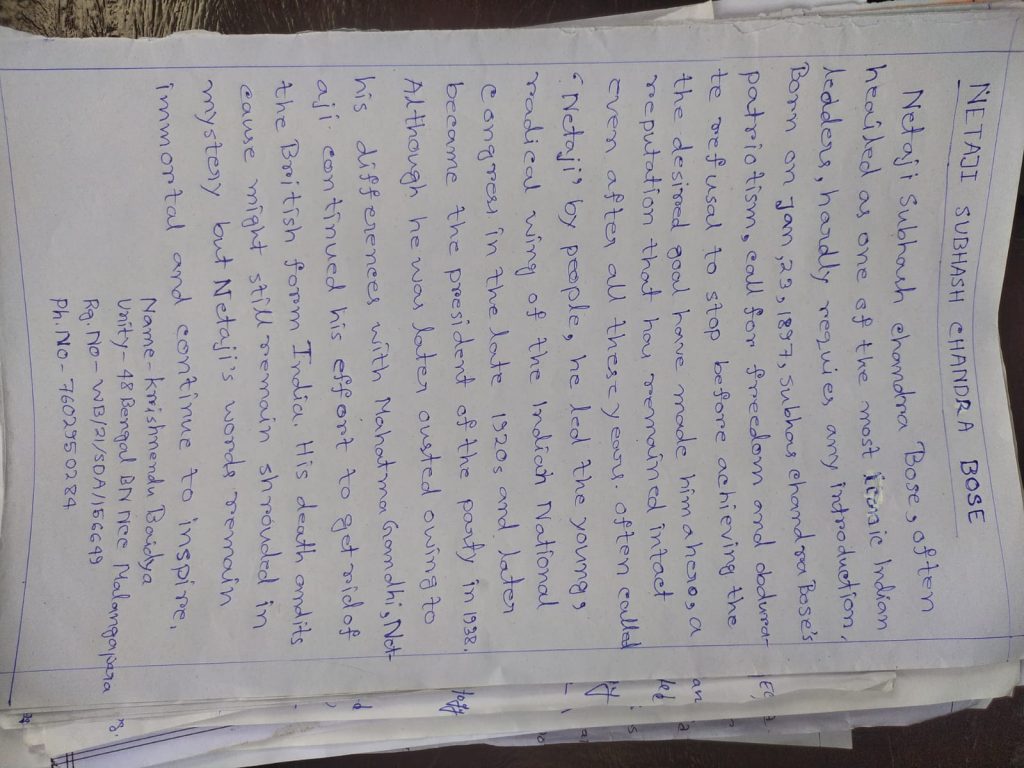 NETAJI SUBHASH CHANDRA BOSE
Netaji Subhash chandra Bose, often
heailed as one of the most iconic Indian
leaders, hardly requies any introduction,
Born on Jan, 23, 1897, Subhas chandra Bose's
patriotism, call for freedom and dadurat-
te refusal to stop before achieving the
the desired goal have made him a hero, a
reputation that has remained intact
even after all these years. often called
"Netaji" by people, he led the young,
radical wing of the Indian National
congress in the late 1920s and later
became the president of the party in 1938.
Although he was later ousted owing to
his differences with Mahatma Gandhi, Net-
aji continued his effort to get rid of
the British form India. His death and its
cause might still remain shrouded in
mystery but Netaji's words remain
immortal and continue to inspire.
Name - Krishnendu Baidya
Unity - 48 Bengal BN Ncc Malangapara
Rg. No - WB/21/SDA/156649
Ph. No - 7602950284